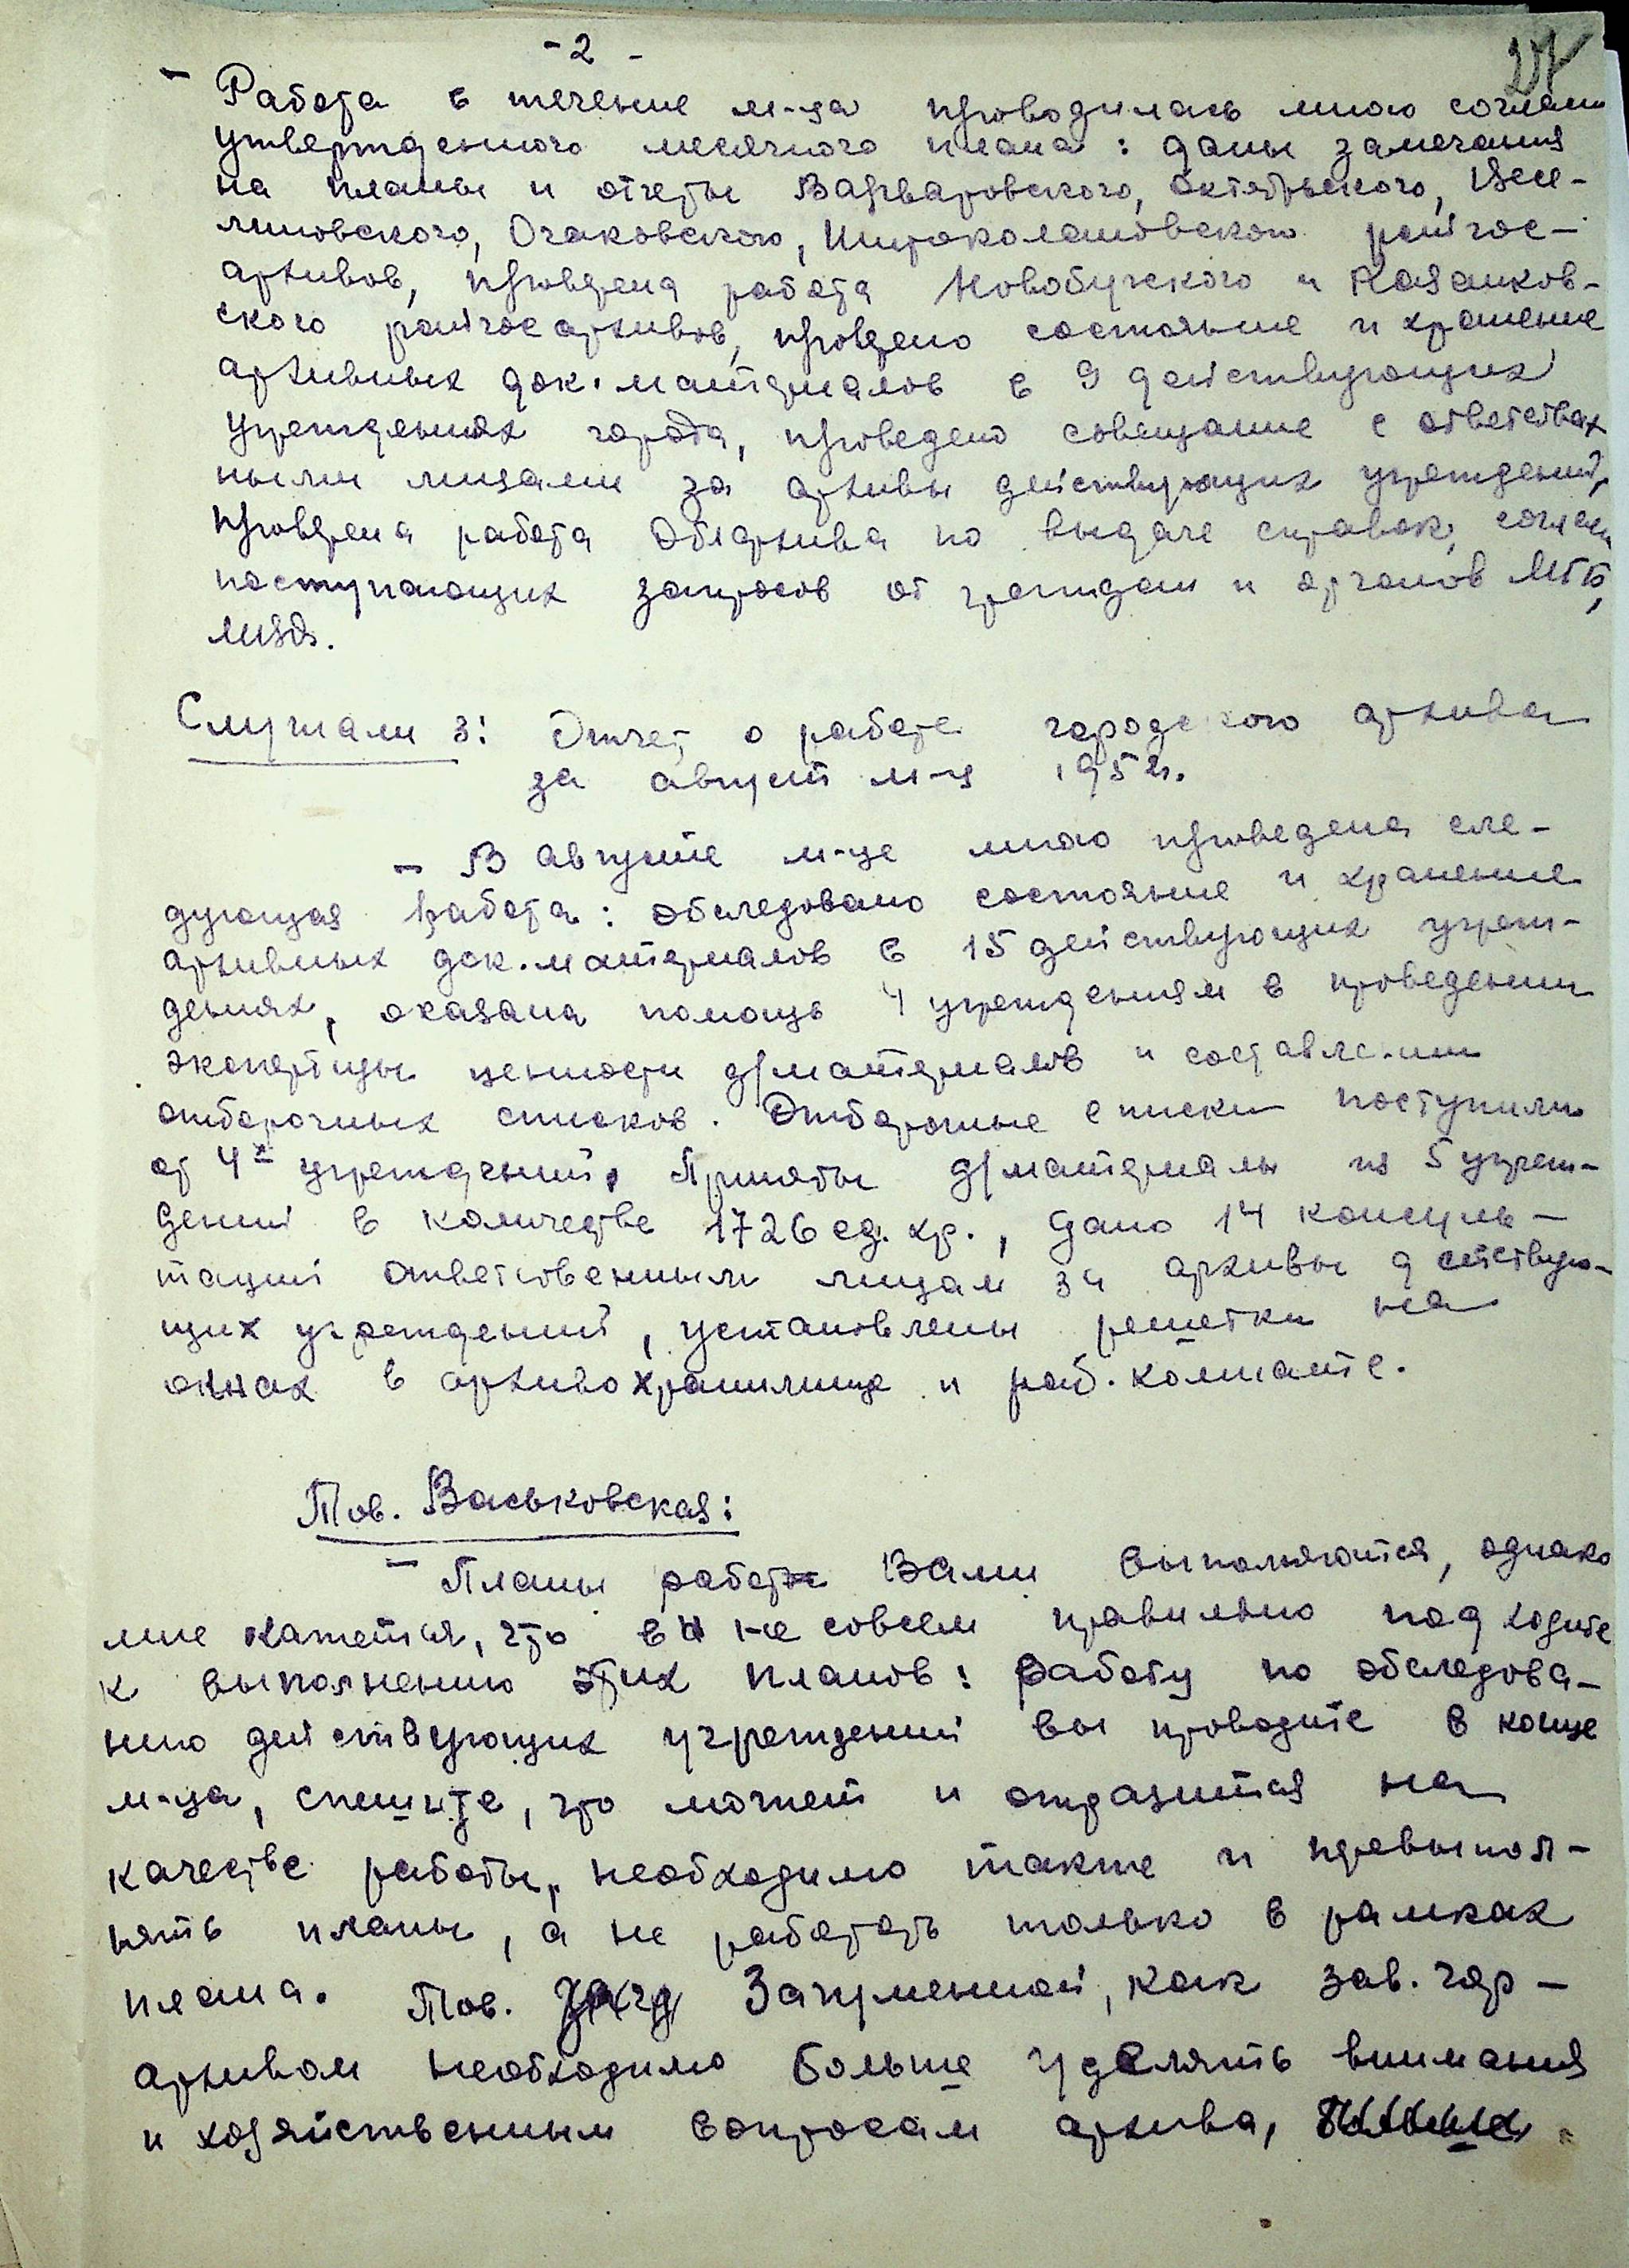 - 2 -
27
- Работа в течение м-ца проводилась мною согласно
утвержденного месячного плана: даны замечания
на планы и отчеты Варваровского, Октябрьского, Весе-
линовского, Очаковского, Широколановского райгос-
архивов, проверена работа Новобугского и Казанков-
ского райгосархивов, проверено состояние и хранение
архивных док. материалов в 9 действующих
учреждениях города, проведено совещание с ответствен
ными лицами за архивы действующих учреждений,
проверена работа Облархива по выдаче справок, согласно
поступающих запросов от граждан и органов МГБ,
МВД.
Слушали 3: Отчет о работе городского архива
за август м-ц 1952г.
- В августе м-це мною проведена сле-
дующая работа: обследовано состояние и хранение
архивных док. материалов в 15 действующих учреж-
дениях, оказана помощь 4 учреждениям в проведении
экспертизы ценности д/материалов и составлении
отборочных списков. Отборочные списки поступили
от 4х учреждений, Приняты д/материалы из 5 учреж-
дений в количестве 1726 ед. хр., дано 14 консуль-
таций ответственным лицам за архивы действую-
щих учреждений, установлены решетки на
окнах в архивохранилище и раб. комнате.
Тов. Васьковская:
- Планы работ Вами выполняются, однако
мне кажется, что вы не совсем правильно подходите
к выполнению этих планов: работу по обследова-
нию действующих учреждений вы проводите в конце
м-ца, спешите, что может и отразится на
качестве работы, необходимо также и перевыпол-
нять планы, а не работать только в рамках
плана. Тов. Запрменной, как зав. гор-
архивом необходимо больше уделять внимания
и хозяйственным вопросам архива,